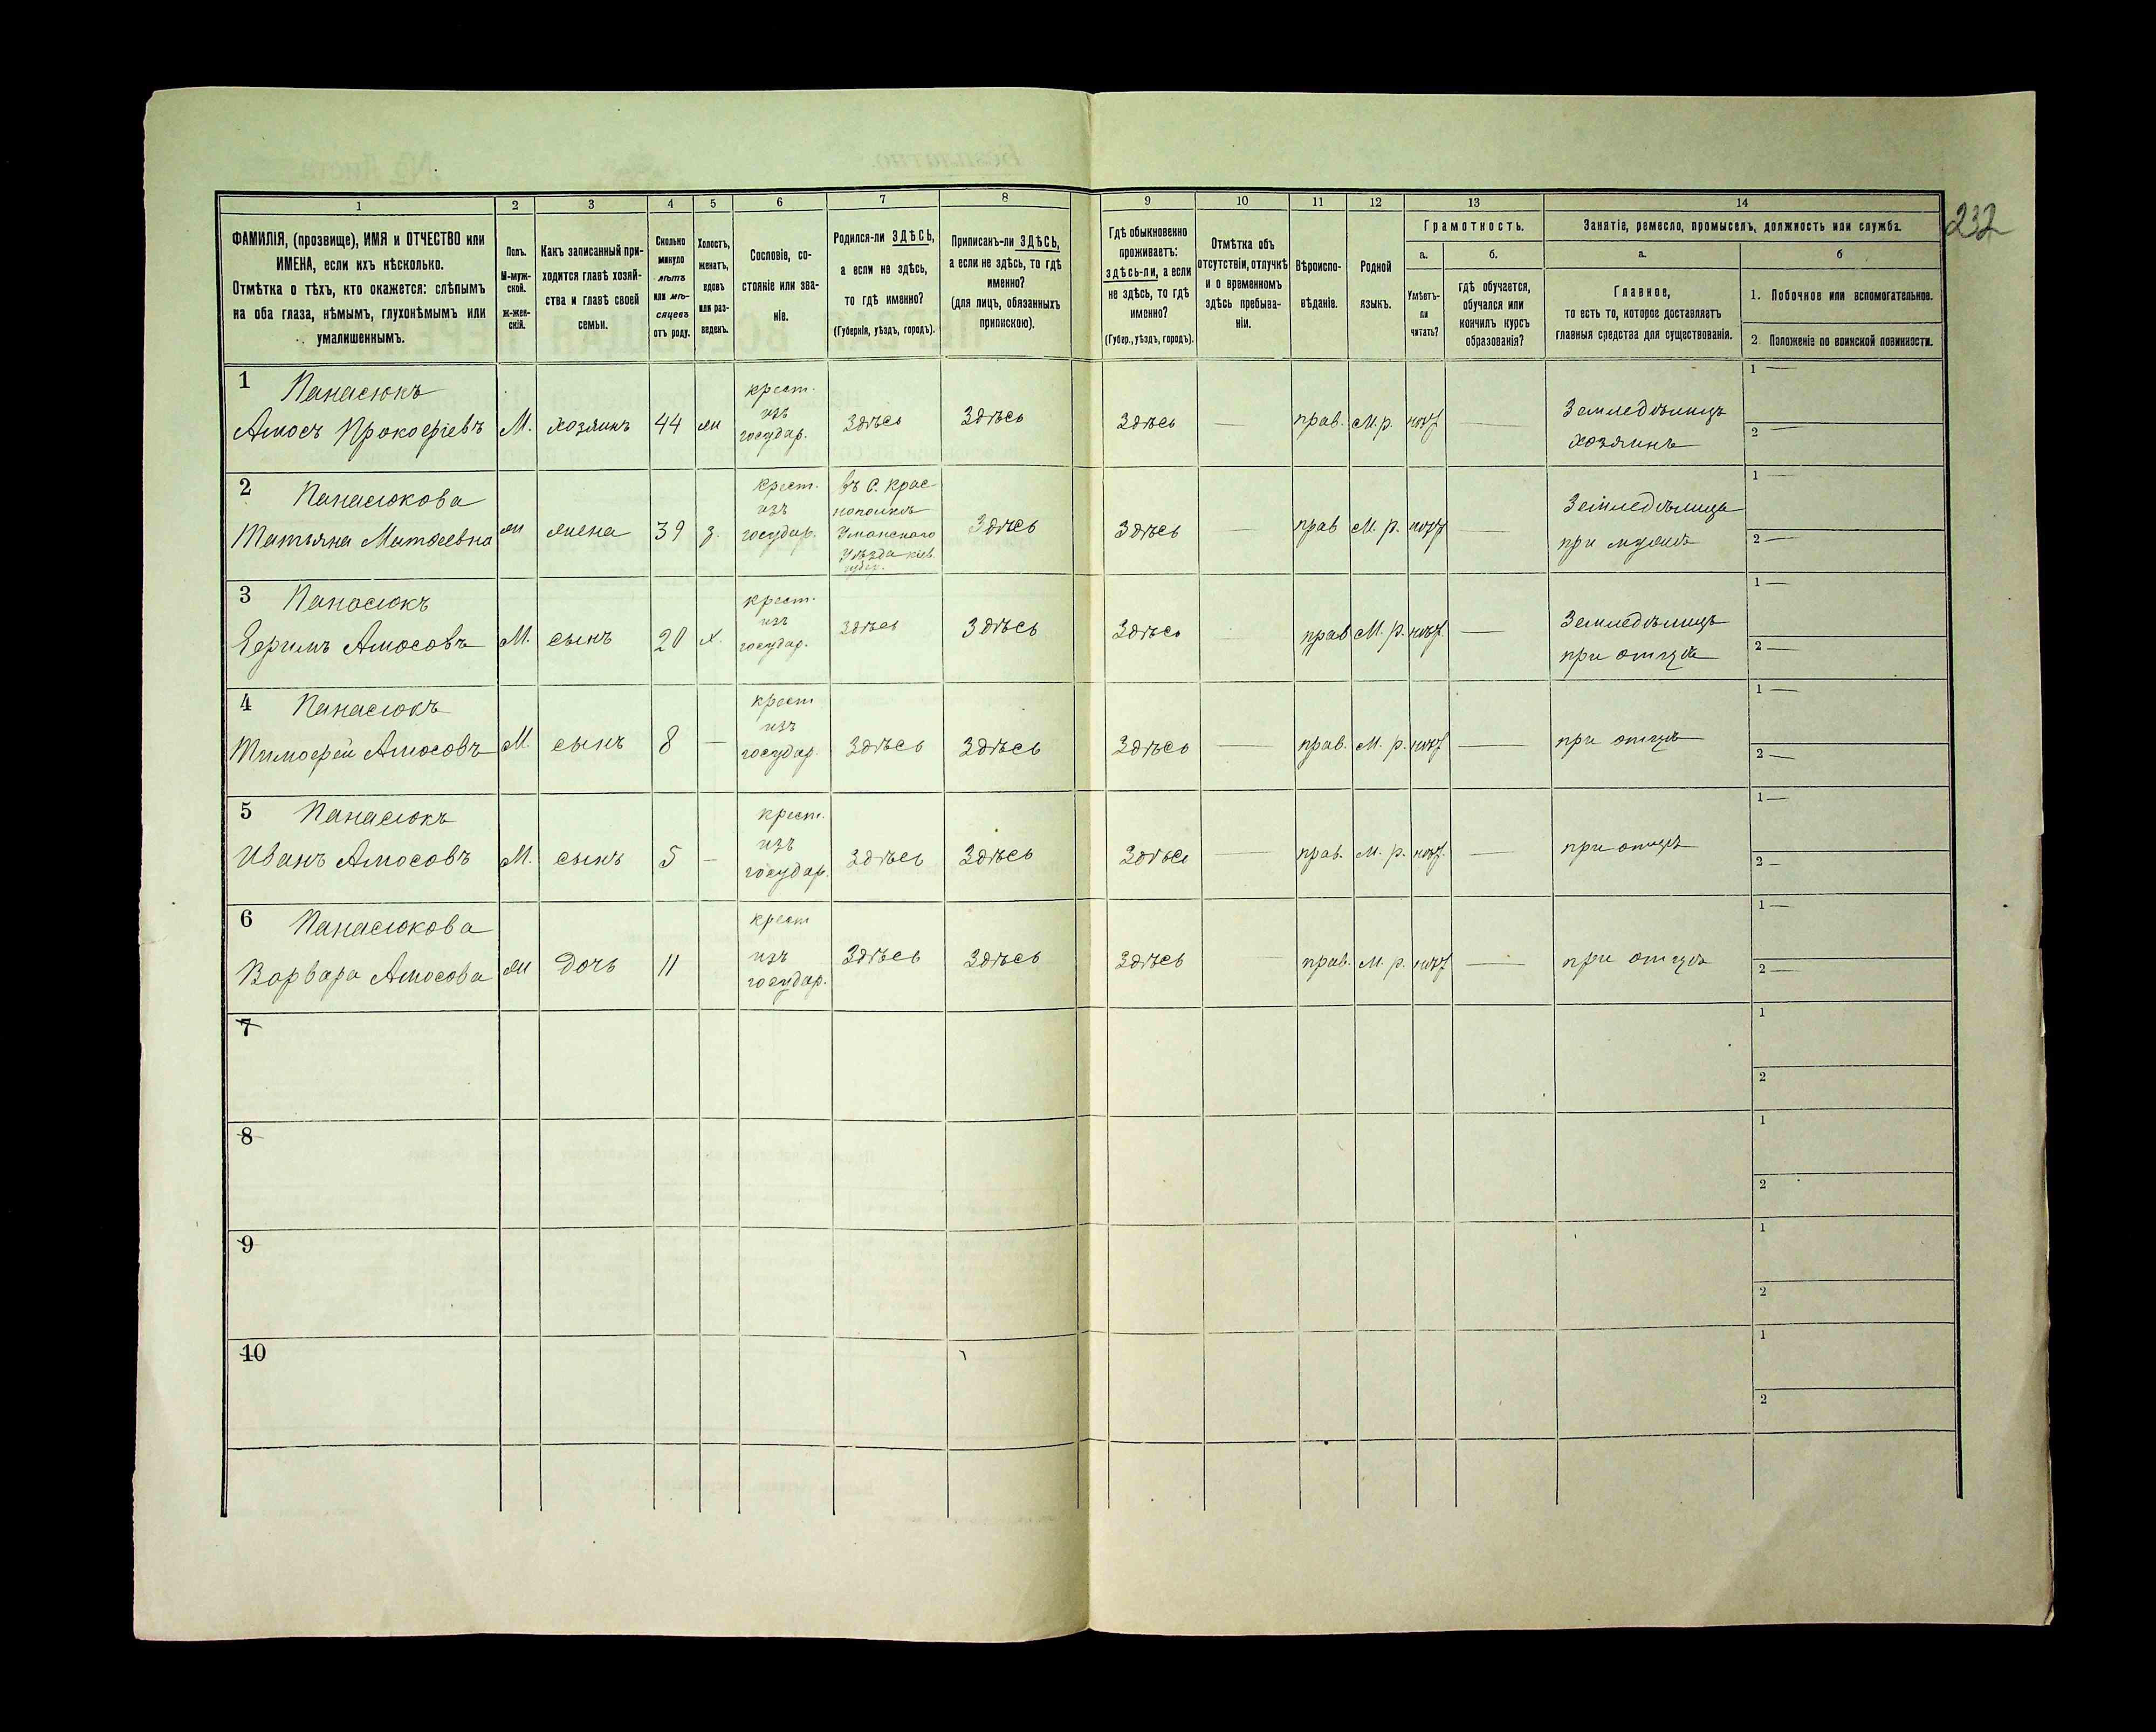 232
1 2 3 4 5 6 7 8 9 10 11 12 13 14
ФАМИЛІЯ, (прозвище), ИМЯ и ОТЧЕСТВО или
ИМЕНА, если ихъ нѣсколько.
Отмѣтка о тѣхъ, кто окажется: слѣпымъ
на оба глаза, нѣмымъ, глухонѣмымъ или
умалишеннымъ.
Полъ.
М-муж-
ской.
ж-жен-
скій.
Какъ записанный при-
ходится главѣ хозяй-
ства и главѣ своей
семьи.
Сколько
минуло
лѣтъ
или мѣ-
сяцевъ
отъ роду.
Холостъ,
женатъ,
вдовъ
или раз-
веденъ.
Сословіе, со-
стояніе или зва-
ніе.
Родился-ли ЗДѢСЬ,
а если не здѣсь,
то гдѣ именно?
(Губернія, уѣздъ, городъ).
Приписанъ-ли ЗДѢСЬ,
а если не здѣсь, то гдѣ
именно?
(для лицъ, обязанныхъ
припискою).
Гдѣ обыкновенно
проживаетъ:
здѣсь-ли, а если
не здѣсь, то гдѣ
именно?
(Губер., уѣздъ, городъ).
Отмѣтка объ
отсутствіи, отлучкѣ
и о временномъ
здѣсь пребыва-
ніи.
Вѣроиспо-
вѣданіе.
Родной
языкъ.
Грамотность.
а.
Умѣетъ-
ли
читать?
б.
гдѣ обучается,
обучался или
кончилъ курсъ
образованія?
Занятіе, ремесло, промыселъ, должность или служба.
а.
Главное,
то есть то, которое доставляетъ
главныя средства для существованія.
б
1. Побочное или вспомогательное.
2. Положеніе по воинской повинности.
1 Панасюкъ
Амосъ Прокофіевъ
М.
хозяинъ
44
ж
крест.
изъ
государ.
здѣсь
здѣсь
здѣсь
—
прав.
М. р.
—
Земледѣлецъ
хозяинъ
1 —
2 —
2 Панасюкова
Татьяна Матвеевна
ж
жена
39
з.
крест.
изъ
государ.
въ с. Крас
нополкѣ
Уманского
Уѣзда кіев.
губер.
здѣсь
здѣсь
—
прав
М. р.
—
Земледѣлица
при мужѣ
1 —
2 —
3 Панасюкъ
Ефимъ Амосовъ
М.
сынъ
20
х.
крест.
изъ
государ.
здѣсь
здѣсь
здѣсь
—
прав
М. р.
—
Земледѣлецъ
при отцѣ
1 —
2 —
4 Панасюкъ
Тимофей Амосовъ
М.
сынъ
8
—
крест
изъ
государ.
здѣсь
здѣсь
здѣсь
—
прав.
М. р.
—
при отцѣ
1 —
2 —
5 Панасюкъ
Иванъ Амосовъ
М.
сынъ
5
—
крест.
изъ
государ.
здѣсь
здѣсь
здѣсь
—
прав.
М. р.
—
при отцѣ
1 —
2 —
6 Панасюкова
Варвара Амосова
ж
дочь
11
крест
изъ
государ.
здѣсь
здѣсь
здѣсь
—
прав.
М. р.
—
при отцѣ
1 —
2 —
7
1
2
8
1
2
9
1
2
10
1
2